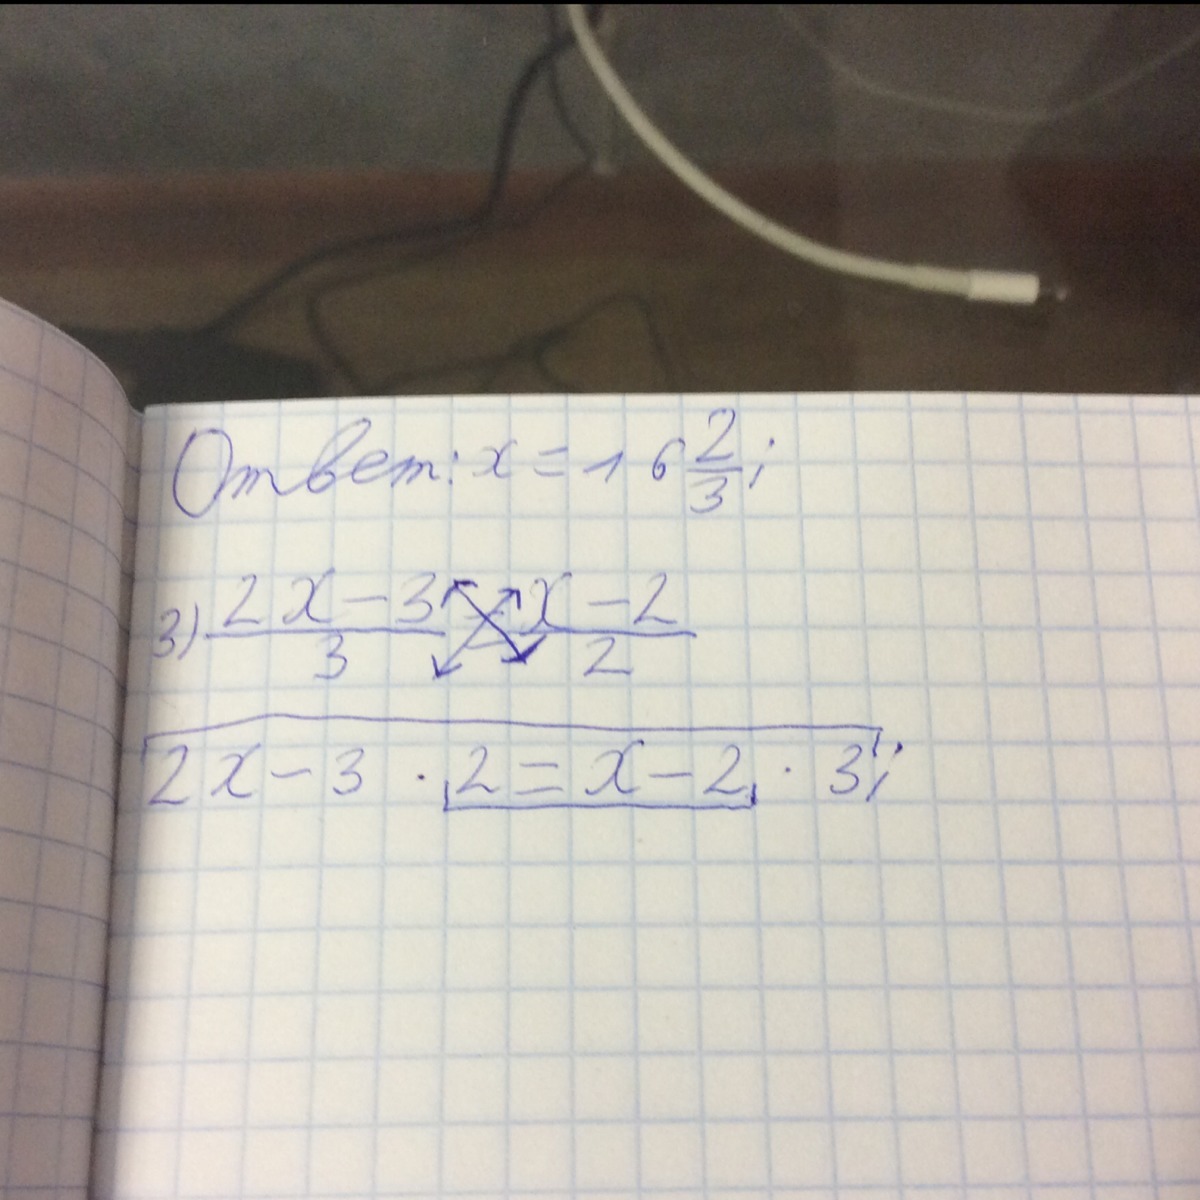 Ответ: x = 16 2/3;
3) (2x-3)/3 = (x-2)/2
2x-3 · 2 = x-2 · 3;